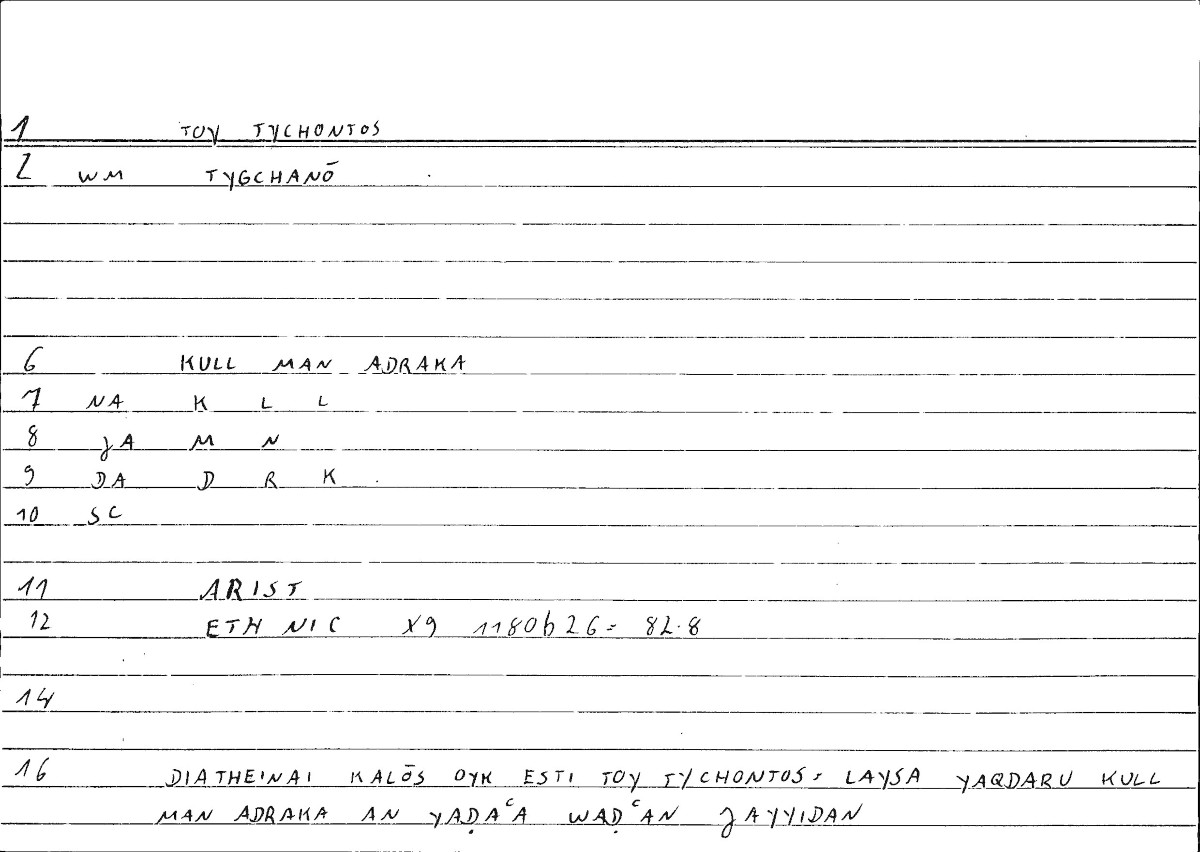 1 TOY TYCHONTOS
2 WM TYGCHANŌ
6 KULL MAN ADRAKA
7 NA K L L
8 ʒA M N
9 DA D R K
10 SC
11 ARIST
12 ETH NIC X9 1180b26= 82.8
14
16 DIATHEINAI KALŌS OYK ESTI TOY TYCHONTOS= LAYSA YAQDARU KULL
MAN ADRAKA AN YAḌAʿA WAḌʿAN ʒAYYIDAN